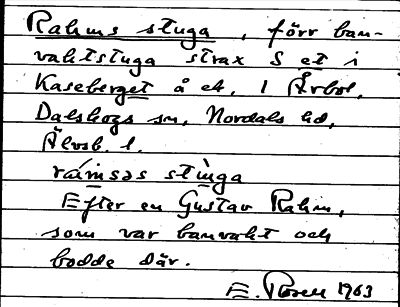 Rahms stuga, förr ban-
vaktstuga strax S et i
Kaseberget å ek. 1 Årbol,
Dalskogs sn, Nordals hd,
Älvsb. l.
rámsəs stùga
Efter en Gustav Rahm,
som var banvakt och
bodde där.
E. Rosell 1963